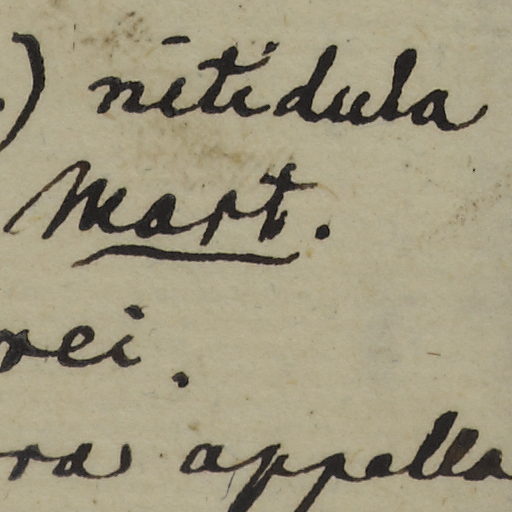 .) nitidula
Mart.
rei.
ra appella